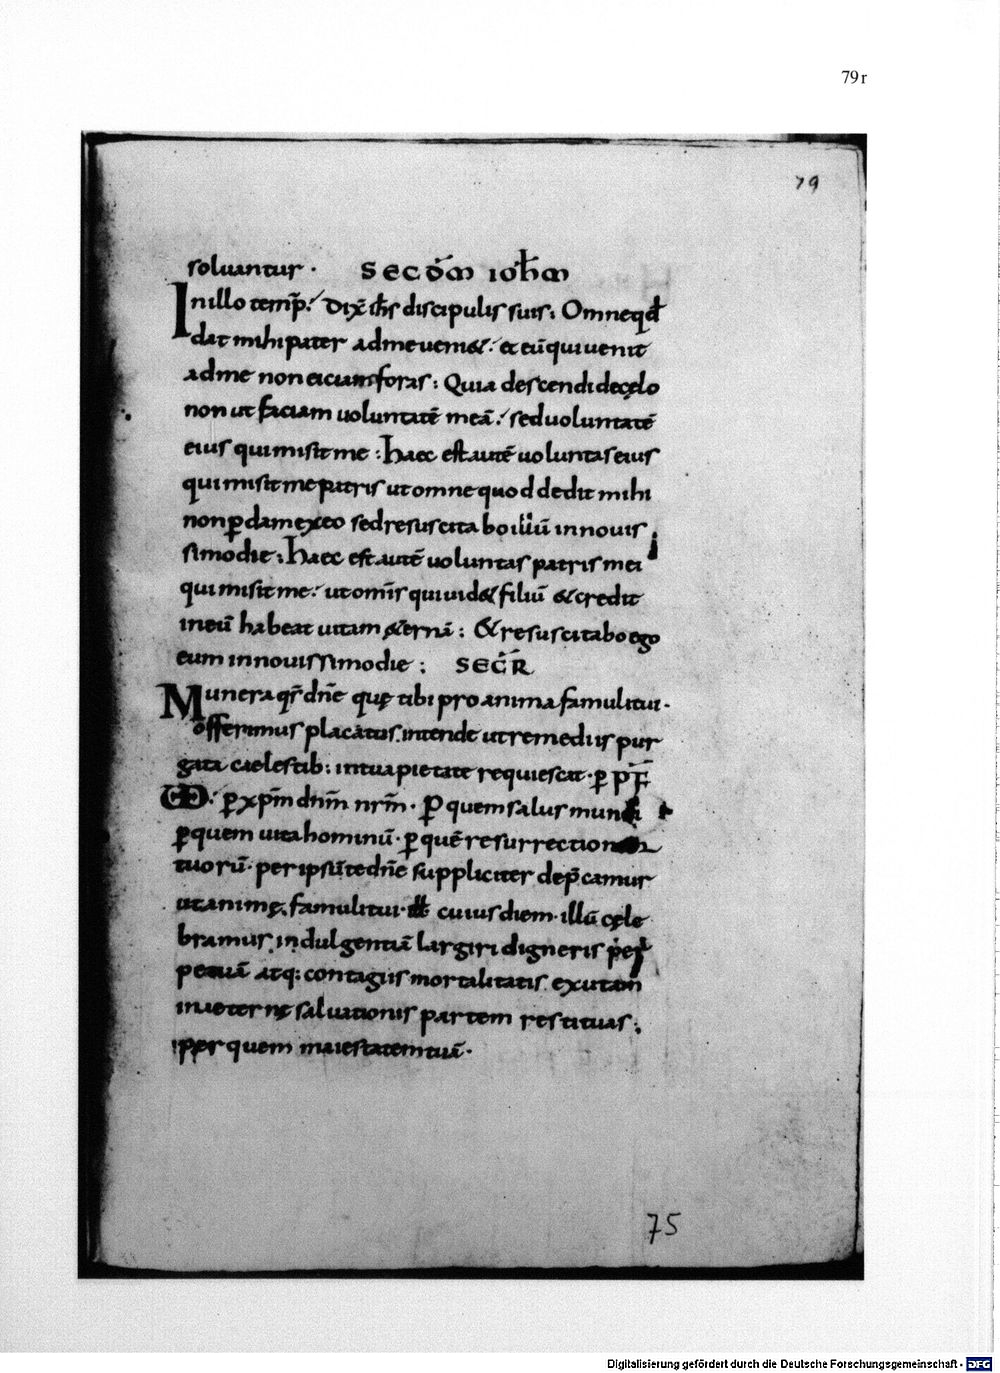 79r
79
soluantur · SECDM IOHM
In illo temp̄. Dix̄ ihs discipulis suis; Omne qd
dat mihi pater ad me ueniet. et eū qui uenit
ad me non eiciam foras; Quia descendi de cęlo
non ut faciam uoluntatē meā. sed uoluntatē
eius qui misit me; haec est autē uoluntas eius
qui misit me patris ut omne quod dedit mihi
non p̄dam ex eo sed resuscitabo illū in nouis
simo die; haec est autē uoluntas patris mei
qui misit me. ut omīs qui uid& filiū & credit
in eū habeat uitam &ernā; & resuscitabo ego
eum in nouissimo die; SECR
Munera qr̄ dn̄e quę tibi pro anima famuli tui ·
offerimus placatus intende ut remediis pur
gata caelestib; in tua pietate requiescat · p̄
p̄ xp̄m dnm̄ nrm̄ · P̄ quem salus mundi
p̄quem uita hominū · p̄ quē resurrectio
tuorū · per ipsū te dn̄e suppliciter dep̄camur
ut animę famuli tui · ill cuius diem · illū cęle
bramus indulgentiā largiri digneris per
petuā atq; contagiis mortalitatis exutam
in aeternę saluationis partem restituas;
per quem maiestatem tuā ·
75
Digitalisierung gefördert durch die Deutsche Forschungsgemeinschaft - DFG